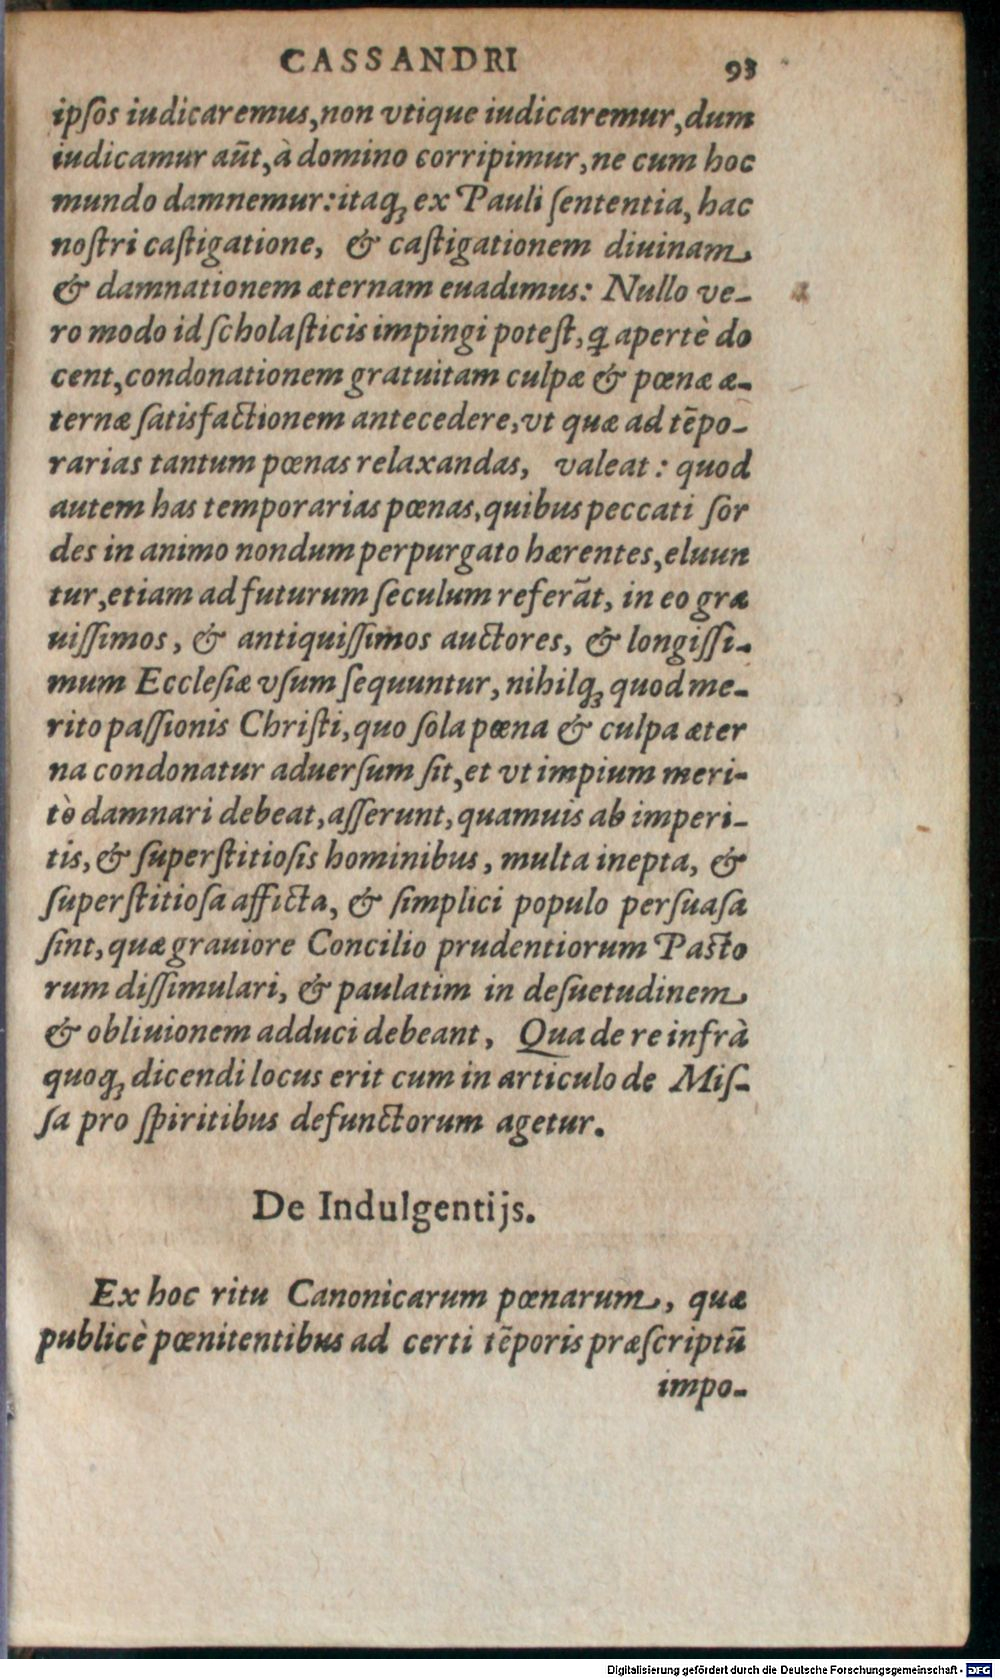 CASSANDRI 93
ipſos iudicaremus, non vtique iudicaremur, dum
iudicamur aūt, à domino corripimur, ne cum hoc
mundo damnemur: itaq; ex Pauli ſententia, hac
noſtri caſtigatione, & caſtigationem diuinam
& damnationem æternam euadimus: Nullo ve-
ro modo id ſcholaſticis impingi poteſt, q apertè do
cent, condonationem gratuitam culpæ & pœnæ æ-
ternæ ſatisfactionem antecedere, vt quæ ad tēpo-
rarias tantum pœnas relaxandas, valeat: quod
autem has temporarias pœnas, quibus peccati ſor
des in animo nondum perpurgato hærentes, eluun
tur, etiam ad futurum ſeculum referāt, in eo græ
uiſſimos, & antiquiſſimos auctores, & longiſſi-
mum Eccleſiæ vſum ſequuntur, nihilq; quod me-
rito paſſionis Chriſti, quo ſola pœna & culpa æter
na condonatur aduerſum ſit, et vt impium meri-
tò damnari debeat, aſſerunt, quamuis ab imperi-
tis, & ſuperſtitioſis hominibus, multa inepta, &
ſuperſtitioſa afficta, & ſimplici populo perſuaſa
ſint, quæ grauiore Concilio prudentiorum Paſto
rum diſſimulari, & paulatim in deſuetudinem
& obliuionem adduci debeant, Qua de re infrà
quoq; dicendi locus erit cum in articulo de Miſ-
ſa pro ſpiritibus defunctorum agetur.
De Indulgentijs.
Ex hoc ritu Canonicarum pœnarum, quæ
publicè pœnitentibus ad certi tēporis præſcriptū
impo-
Digitalisierung gefördert durch die Deutsche Forschungsgemeinschaft - DFG